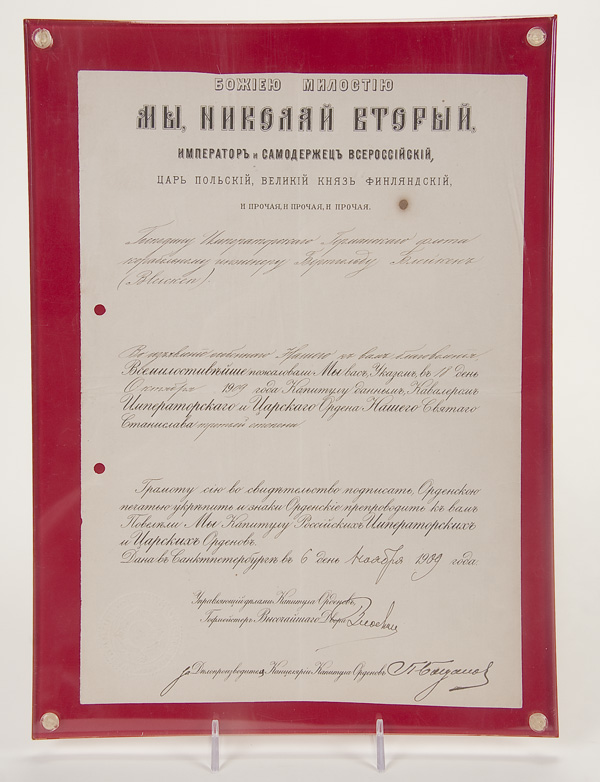 БОЖІЕЮ МИЛОСТІЮ
МЫ, НИКОЛАЙ ВТОРЫЙ,
ИМПЕРАТОРЪ и САМОДЕРЖЕЦЪ ВСЕРОССІЙСКІЙ,
ЦАРЬ ПОЛЬСКІЙ, ВЕЛИКІЙ КНЯЗЬ ФИНЛЯНДСКІЙ,
И ПРОЧАЯ, И ПРОЧАЯ, И ПРОЧАЯ.
Господину Императорскаго Германскаго флота
корабельному инженеру
Въ изъявленіе особеннаго Нашего къ вамъ благоволенія,
Всемилостивѣйше пожаловали Мы васъ, Указомъ, въ 11 день
Октября 1909 года Капитулу даннымъ, Кавалеромъ
Императорскаго и Царскаго Ордена Нашего Святаго
Станислава третьей степени
Грамоту сію во свидѣтельство подписать, Орденскою
печатью укрѣпить и знаки Орденскіе препроводить къ вамъ
Повелѣли Мы Капитулу Россійскихъ Императорскихъ
и Царскихъ Орденовъ.
Дана въ Санктпетербургѣ въ 6 день Ноября 1909 года
Управляющій дѣлами Капитула Орденовъ,
Гофмейстеръ Высочайшаго Двора
Дѣлопроизводителя Канцеляріи Капитула Орденовъ